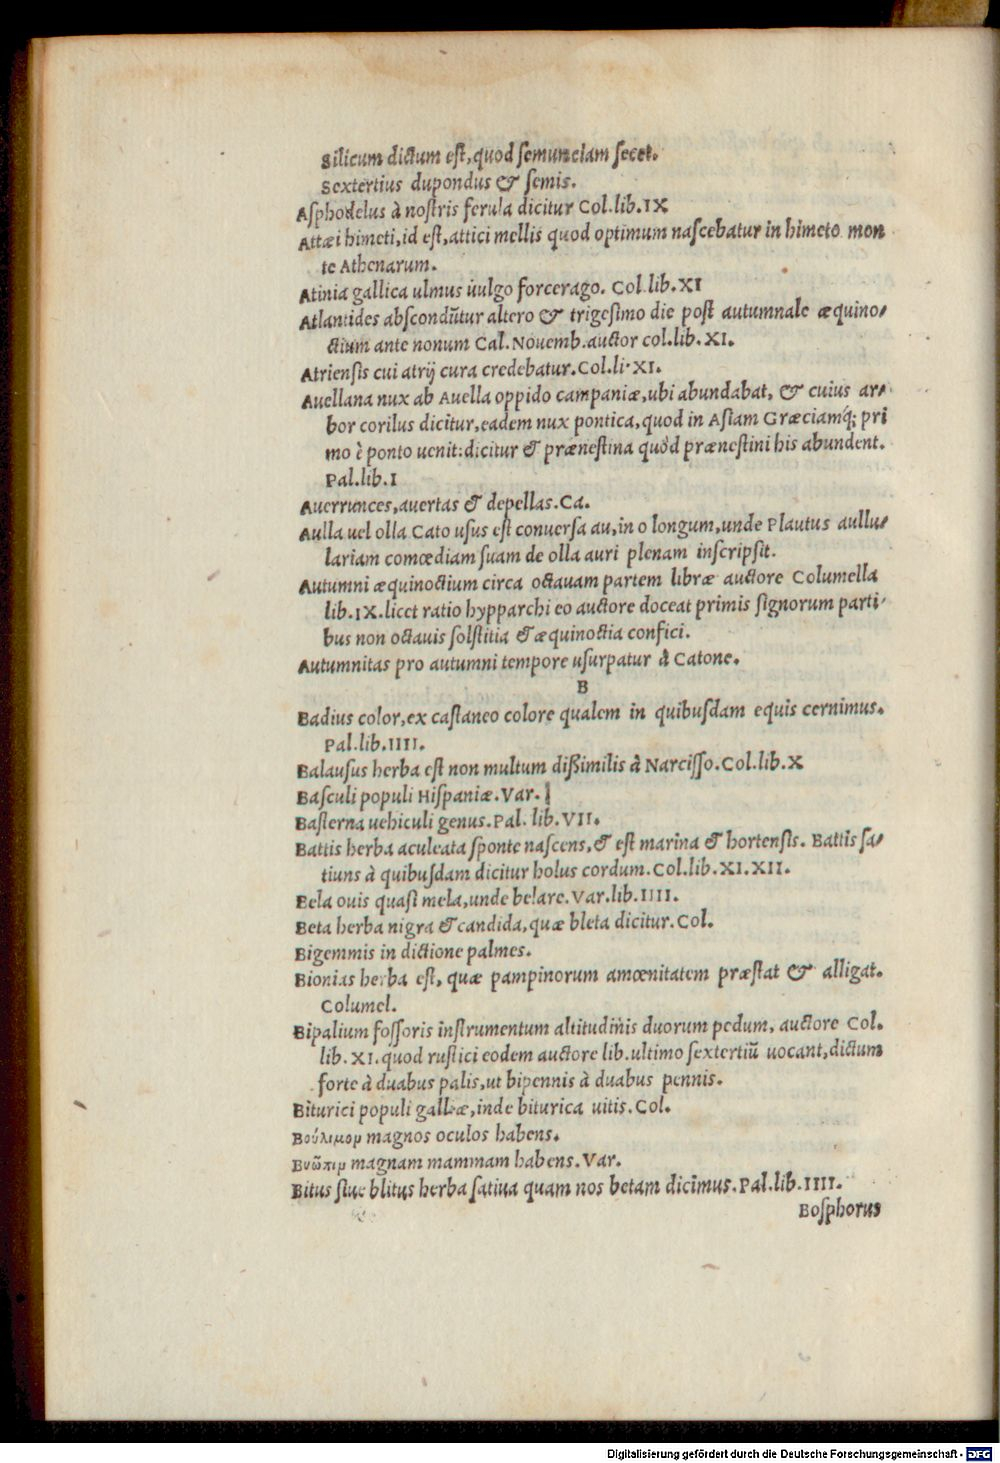 Silicum dictum est, quod semunciam secet.
Sextertius dupondus & semis.
Asphodelus à nostris ferula dicitur Col.lib.IX
Attæi himeti, id est, attici mellis quod optimum nascebatur in himeto mon
te Athenarum.
Atinia gallica ulmus uulgo forcerago. Col.lib.XI
Atlantides abscondūtur altero & trigesimo die post autumnale æquino/
ctium ante nonum Cal. Nouemb. auctor col.lib.XI.
Atriensis cui atrij cura credebatur. Col.li.XI.
Auellana nux ab Auella oppido campaniæ, ubi abundabat, & cuius ar/
bor corilus dicitur, eadem nux pontica, quod in Asiam Græciamq́; pri
mo è ponto uenit: dicitur & prænestina quòd prænestini his abundent.
Pal.lib.I
Auerrunces, auertas & depellas. Ca.
Aulla uel olla Cato usus est conuersa au, in o longum, unde Plautus aullu/
lariam comœdiam suam de olla auri plenam inscripsit.
Autumni æquinoctium circa octauam partem libræ auctore Columella
lib.IX. licet ratio hypparchi eo auctore doceat primis signorum parti/
bus non octauis solstitia & æquinoctia confici.
Autumnitas pro autumni tempore usurpatur à Catone.
B
Badius color, ex castaneo colore qualem in quibusdam equis cernimus.
Pal.lib.IIII.
Balausus herba est non multum dißimilis à Narcisso. Col.lib.X
Basculi populi Hispaniæ. Var.
Basterna uehiculi genus. Pal. lib.VII.
Battis herba aculeata sponte nascens, & est marina & hortensis. Battis sa/
tiuns à quibusdam dicitur holus cordum. Col.lib.XI.XII.
Bela ouis quasi mela, unde belare. Var.lib.IIII.
Beta herba nigra & candida, quæ bleta dicitur. Col.
Bigemmis in dictione palmes.
Bionias herba est, quæ pampinorum amœnitatem præstat & alligat.
Columel.
Bipalium fossoris instrumentum altitudinis duorum pedum, auctore Col.
lib.XI. quod rustici eodem auctore lib. ultimo sextertiū uocant, dictum
forte à duabus palis, ut bipennis à duabus pennis.
Biturici populi galliæ, inde biturica uitis. Col.
Βούλιμομ magnos oculos habens.
Βνῶπιμ magnam mammam habens. Var.
Bitus siue blitus herba satiua quam nos betam dicimus. Pal.lib.IIII.
Bosphorus
Digitalisierung gefördert durch die Deutsche Forschungsgemeinschaft - DFG